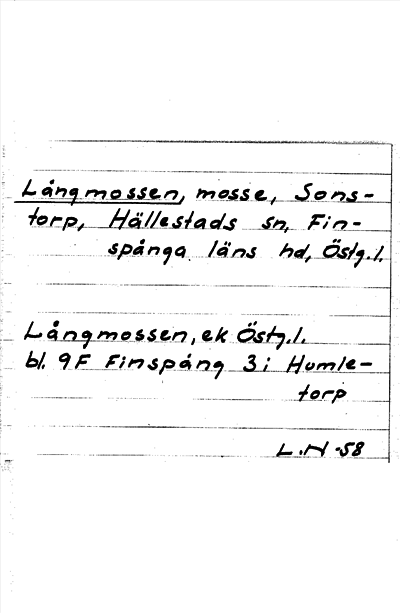 Långmossen, mosse, Sons-
torp, Hällestads sn, Fin-
spånga läns hd, Östg.l.
Långmossen, ek Östg.l.
bl. 9F Finspång 3i Humle-
torp
L.N -58